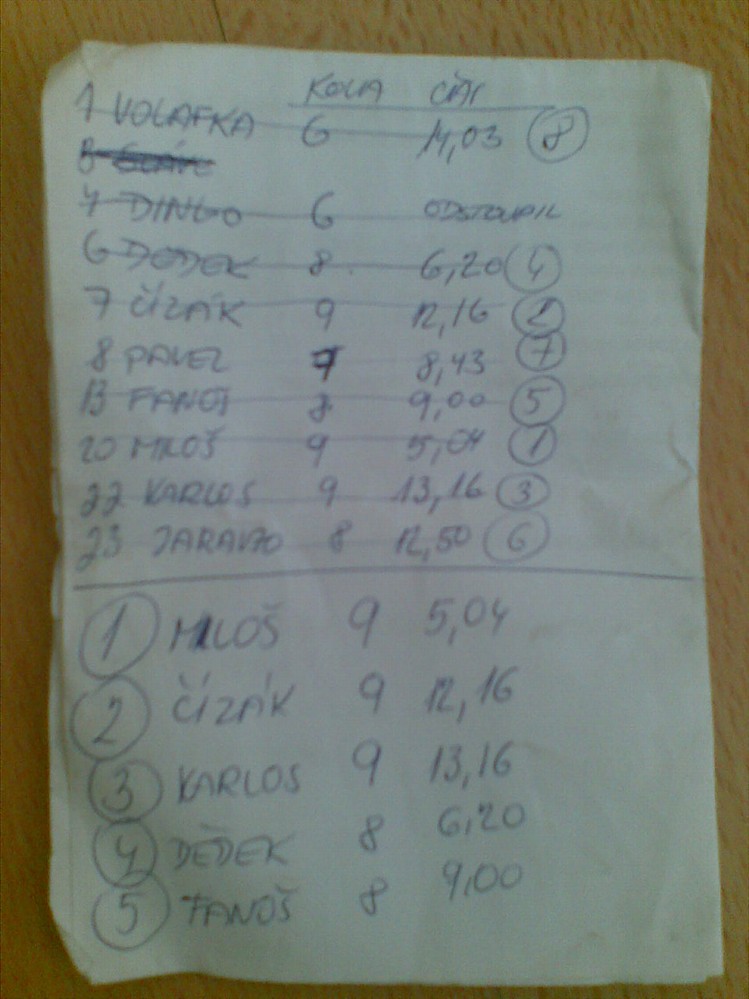 KOLA ČAS
1 VOLAFKA 6 14,03 8
4 DINGO 6 ODSTOUPIL
6 DĚDEK 8 6,20 4
7 ČÍZÁK 9 12,16 2
8 PAVEL 7 8,43 7
13 FANOŠ 8 9,00 5
20 MILOŠ 9 5,04 1
22 KARLOS 9 13,16 3
23 8 12,50 6
1 MILOŠ 9 5,04
2 ČÍZÁK 9 12,16
3 KARLOS 9 13,16
4 DĚDEK 8 6,20
5 FANOŠ 8 9,00